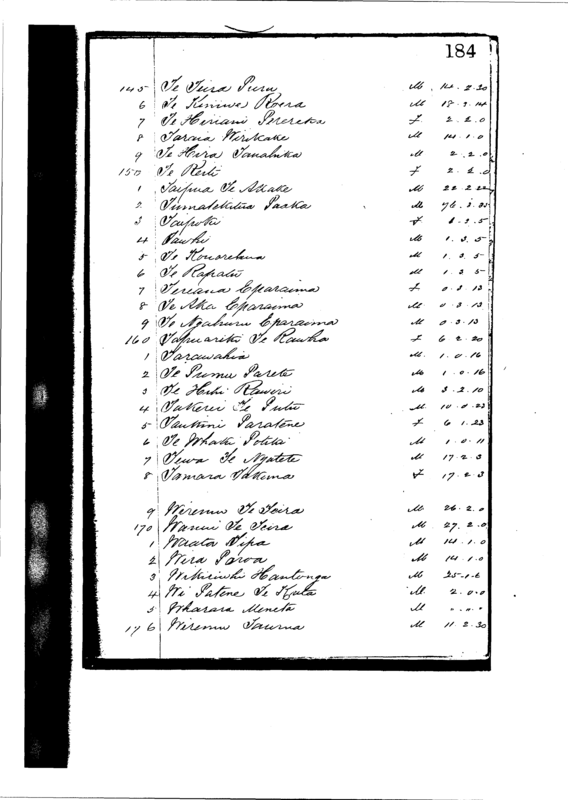 184
145 Te Teira Puru M 14.2.20
6 Te Kiniwe Roera M 18.2.14
7 Te Hiriani Perereka f 2.2.0
8 Taraia Wirikake M 14.1.0
9 Te Hira M 2.2.0
150 Te Reiti f 2.2.0
1 Taipua Te Akake M 22.2.22
2 Paaka M
3 Taipoki f
4 Tawhi M 1.3.5
5 Te M 1.3.5
6 Te Rapata M 1.3.5
7 Teriana Eparaima f 0.3.13
8 Te Aka Eparaima M 0.3.13
9 Te Ngahuru Eparaima M 0.3.13
160 Tapuariki Te Rawha f 6.2.20
1 Tarawahia M 1.0.16
2 Te Pumu Parete M 1.0.16
3 Te Hihi Rawiri M 3.2.10
4 Takerei Te Putu M 10.0.23
5 Paratene f 6.1.23
6 Te Whaki Potiki M 1.0.11
7 Tewa Te Ngatete M 17.2.3
8 Tamara Takima f 17.2.3
9 Wiremu Te Teira M 26.2.0
170 Wanui Te Teira M 27.2.0
1 Waata Tipa M 14.1.0
2 Wera Paroa M 14.1.0
3 Hautonga M 25.1.6
4 Wi Patene Te Huta M 2.0.0
5 Wharara Meneta M
176 Wiremu Tauma M 11.2.30